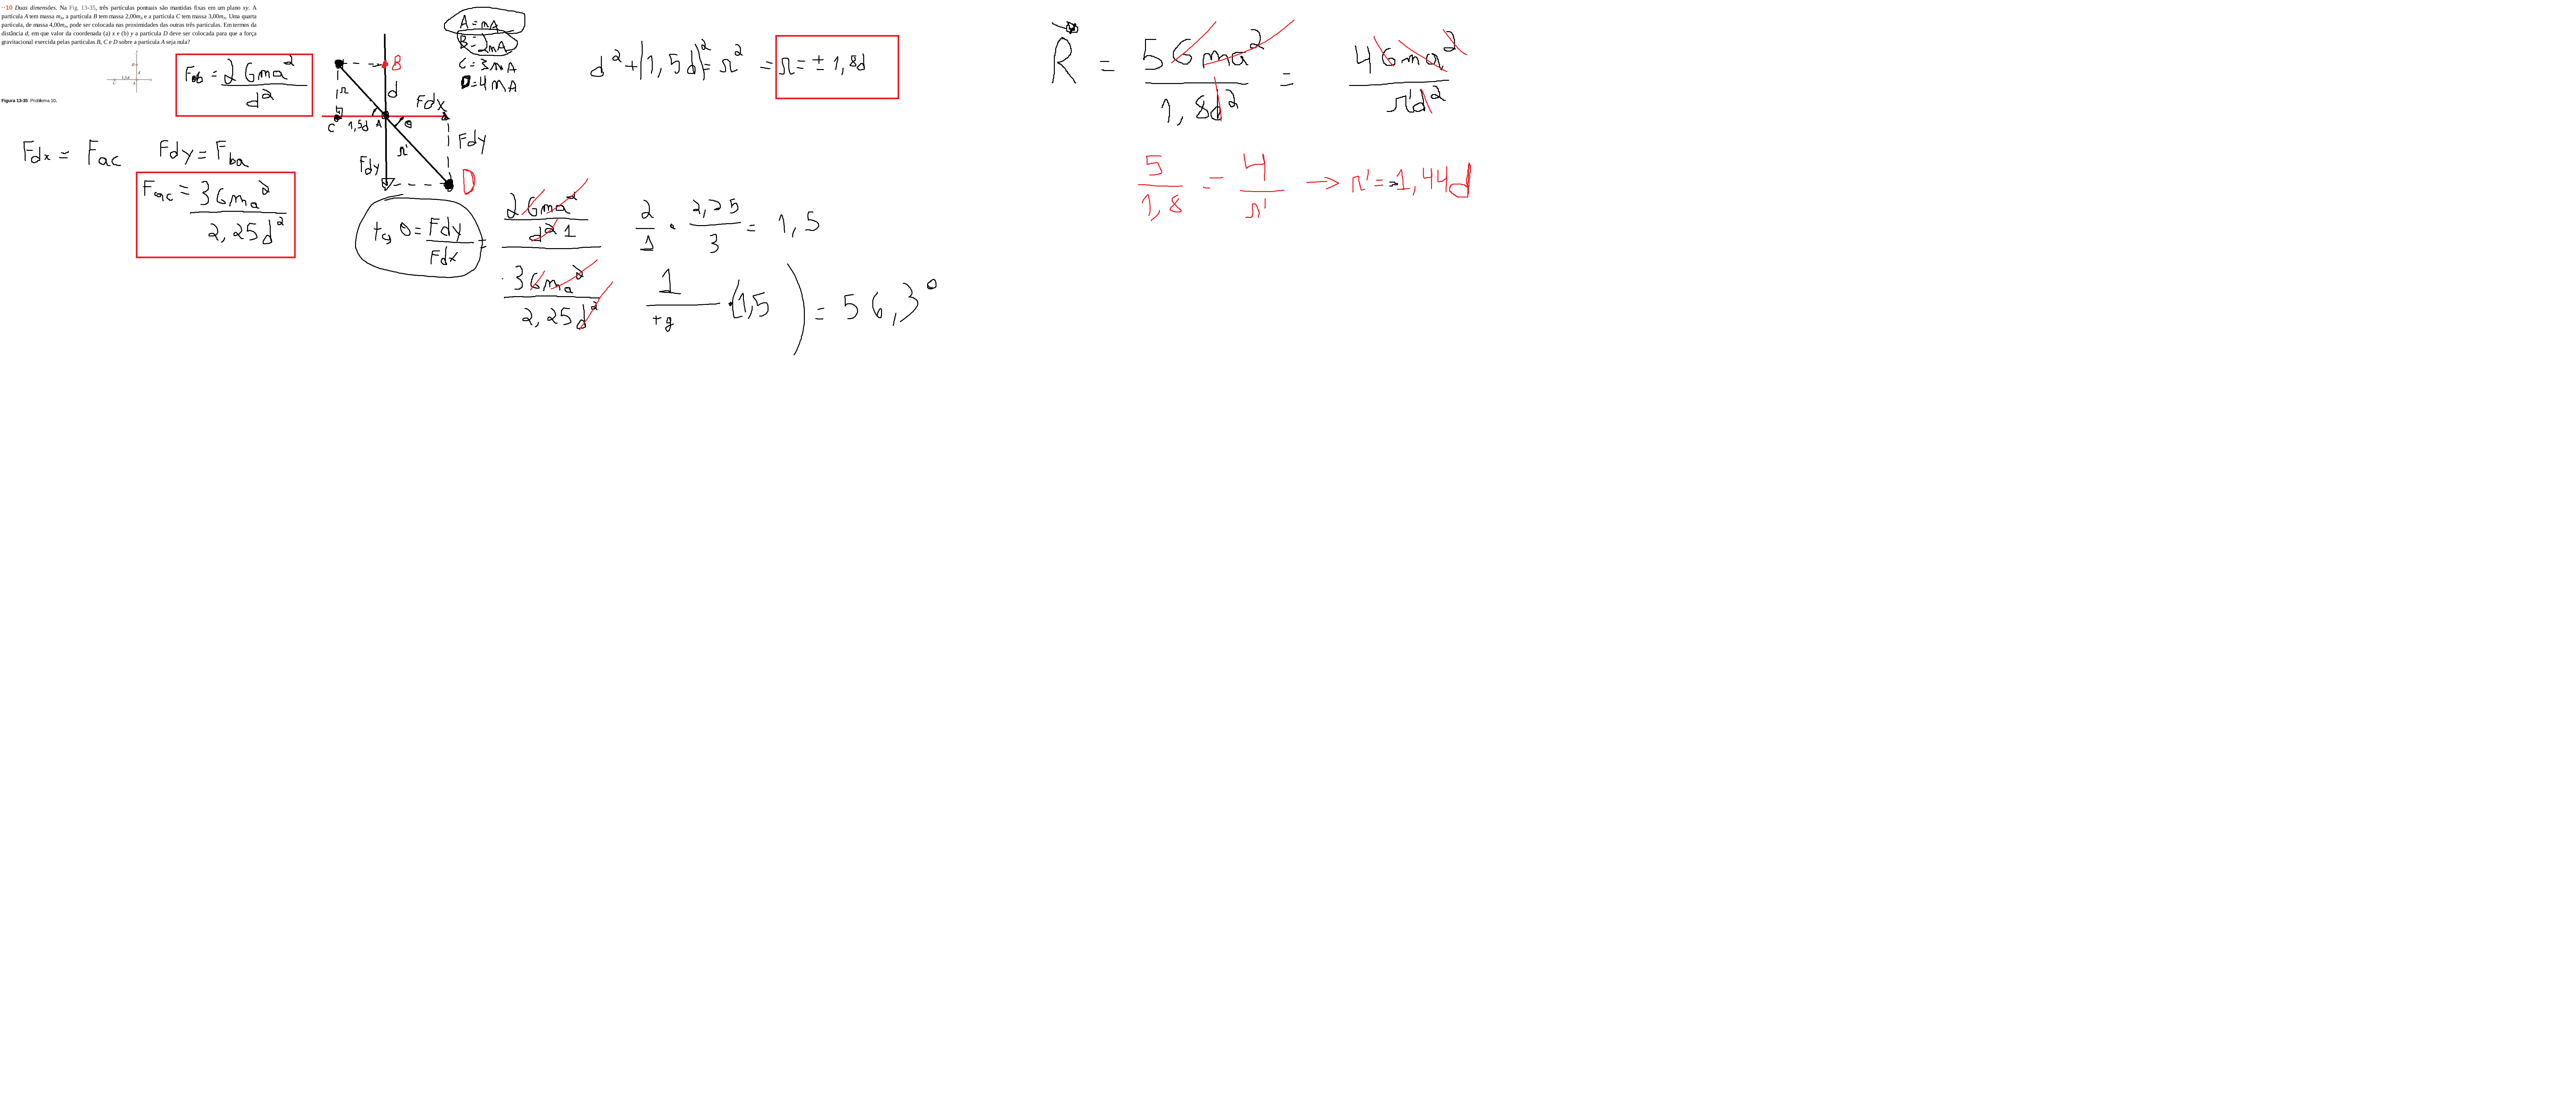 ··10 Duas dimensões. Na Fig. 13-35, três partículas pontuais são mantidas fixas em um plano xy. A
partícula A tem massa mA, a partícula B tem massa 2,00mA e a partícula C tem massa 3,00mA. Uma quarta
partícula, de massa 4,00mA, pode ser colocada nas proximidades das outras três partículas. Em termos da
distância d, em que valor da coordenada (a) x e (b) y a partícula D deve ser colocada para que a força
gravitacional exercida pelas partículas B, C e D sobre a partícula A seja nula?
Figura 13-35 Problema 10.
Fab = 2Gma²/d²
Fdx = Fac Fdy = Fba
Fac = 3Gma²/2,25d²
B
d
r
C 1,5d A θ
Fdx
Fdy
Fdy
r'
D
A = mA
B = 2mA
C = 3mA
D = 4mA
tg θ = Fdy/Fdx = 2Gma²/d² 1
3Gma²/2,25d²
2/1 · 2,25/3 = 1,5
1/tg · (1,5) = 56,3°
d² + (1,5d)² = r² = r = ± 1,8d
R = 5Gma²/1,8d² = 4Gma²/r'd²
5/1,8 = 4/r' → r' = 1,44d